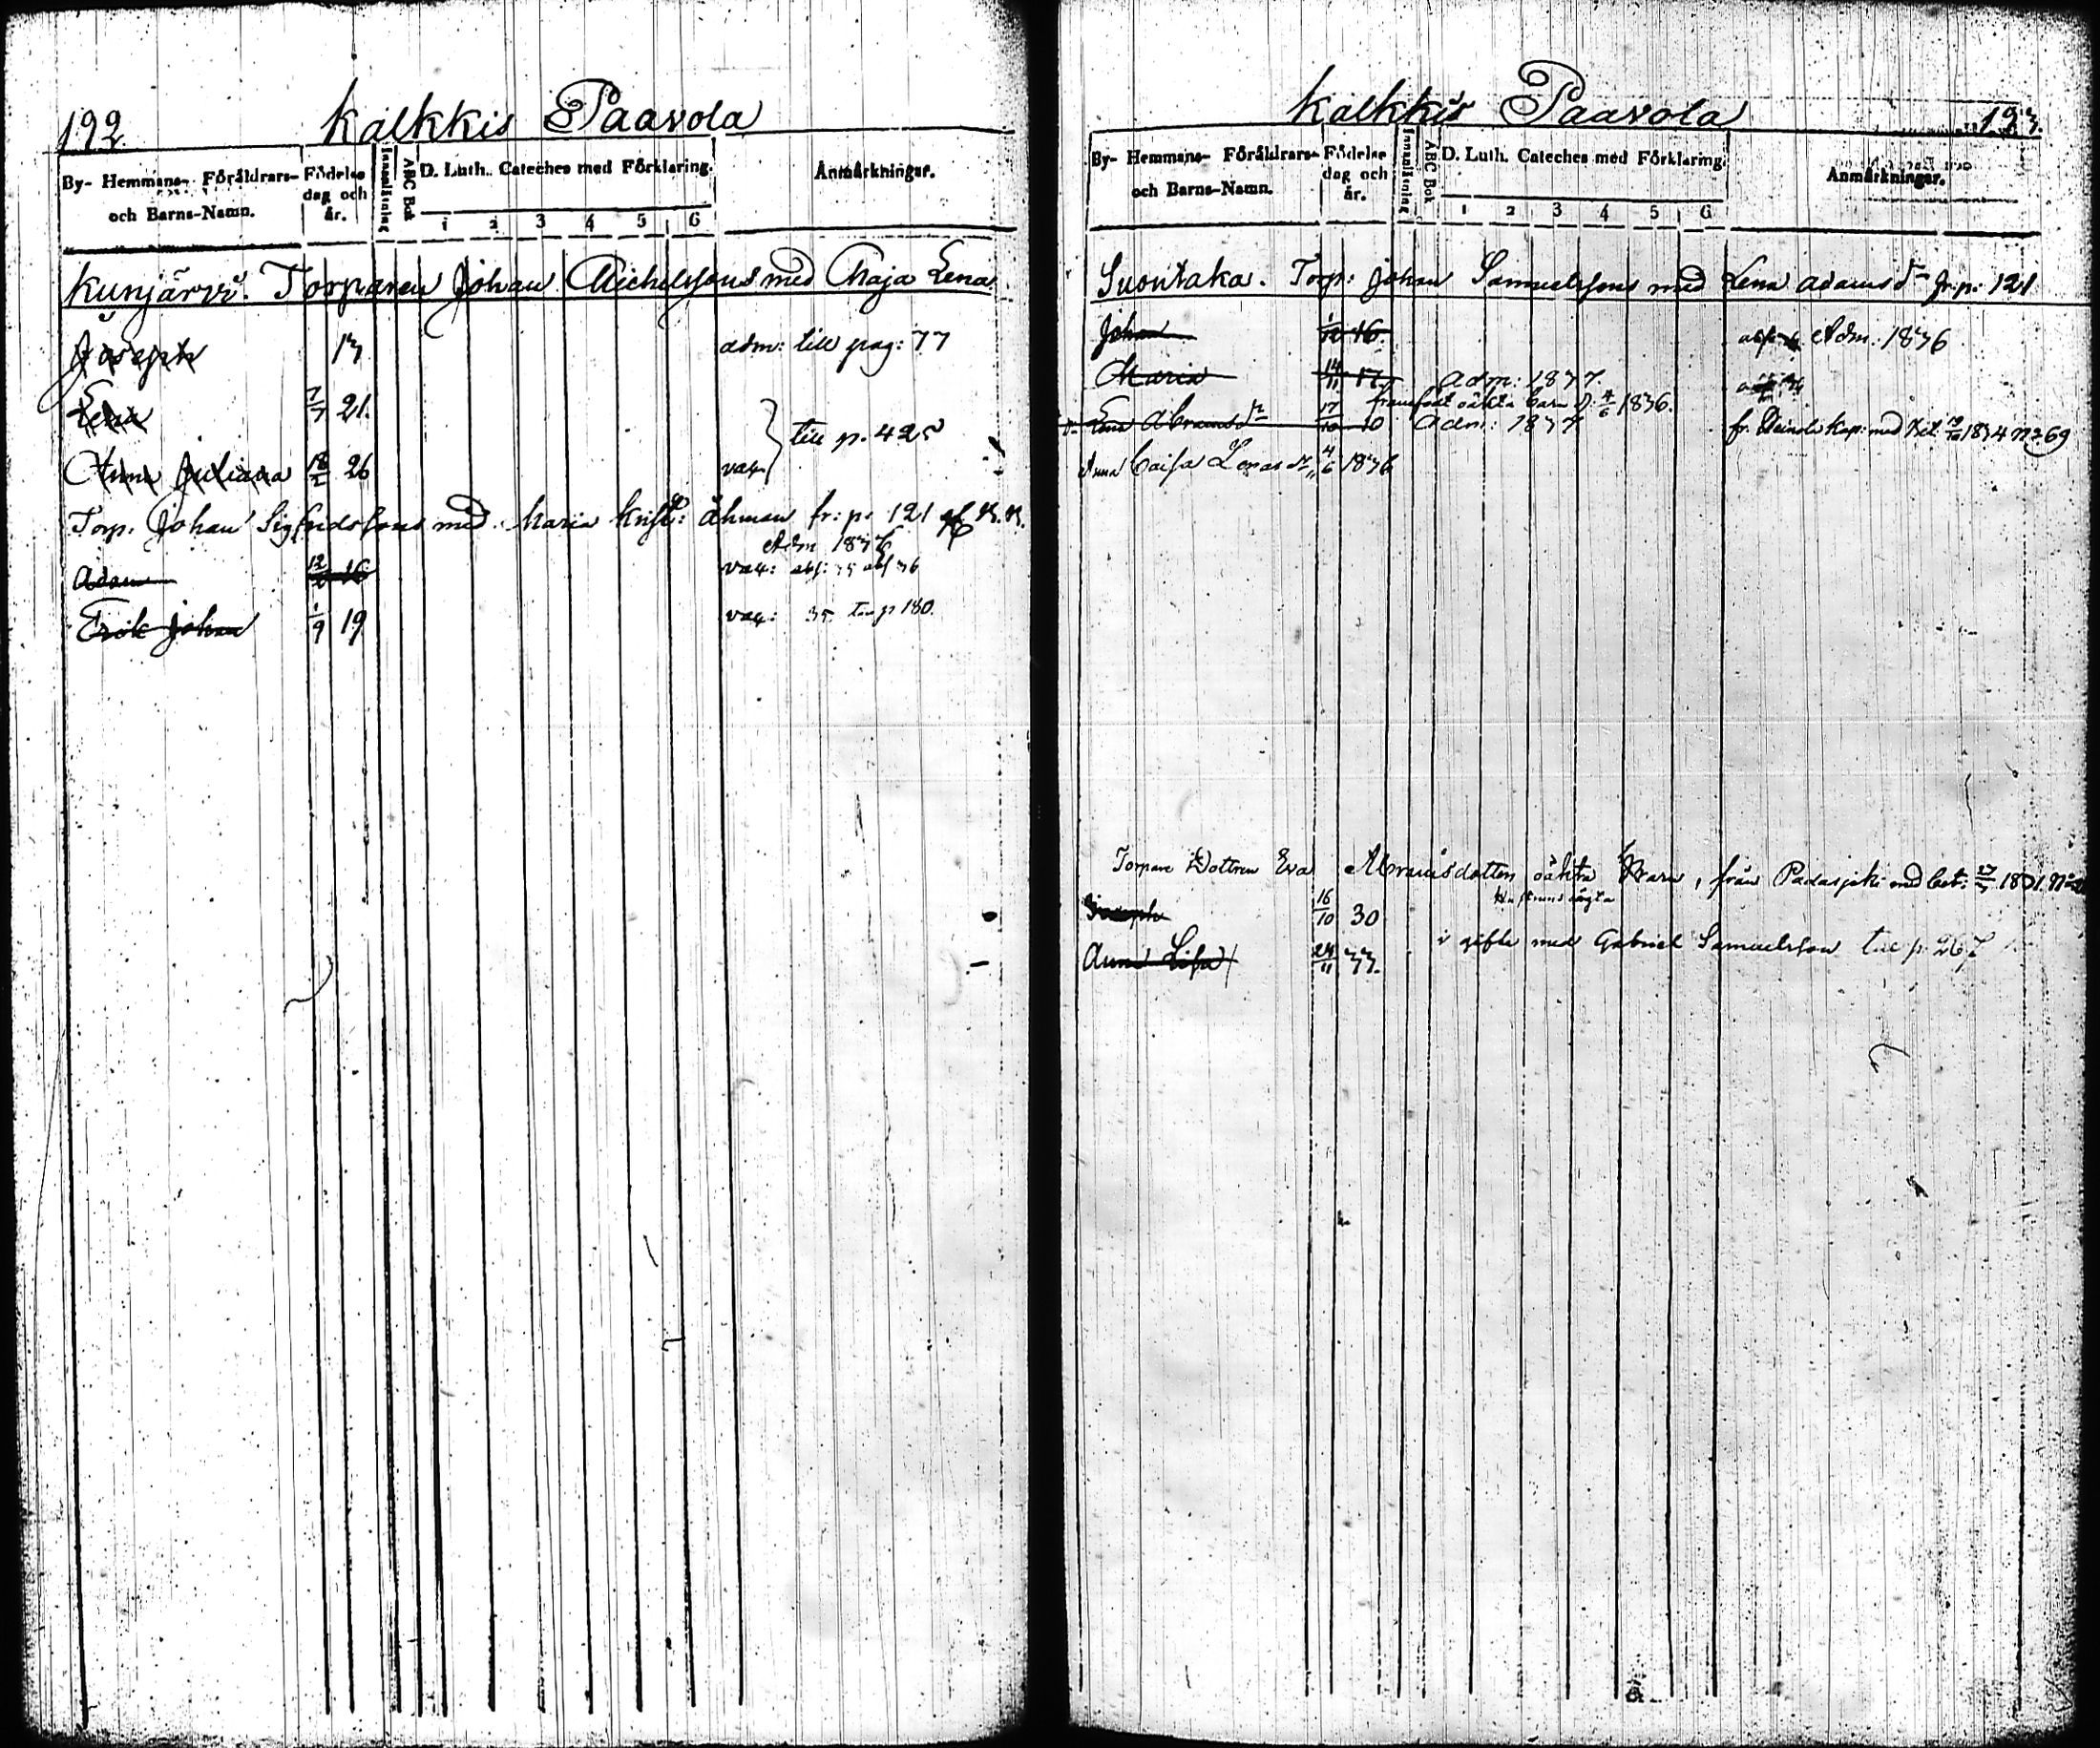 192.
Kalkkis Paavola
By- Hemmans- Föräldrars- och Barns-Namn. Födelse dag och år. Innanläsning ABC Bok D. Luth. Cateches med Förklaring. 1 2 3 4 5 6 Anmärkningar.
Kunjärvi. Torparen Johan Michelssons med Maja Lena
Joseph 13 adm: till pag: 77
Lena 7/7 21.
till p. 425
Anna Juliana 18/2 26 vac:
Torp. Johan Sigfridssons med Maria Krist: Åhman fr: p: 121
Adm 1836
Adam 12/ 16 vac: abs: 35 abs 36
Erik Johan 1/9 19 vac: 35 p 180.
Kalkkis Paavola
193.
By- Hemmans- Föräldrars- och Barns-Namn. Födelse dag och år. Innanläsning ABC Bok D. Luth. Cateches med Förklaring. 1 2 3 4 5 6 Anmärkningar.
Suontaka. Torp: Johan Samuelssons med Lena Adamsdr fr: p: 121
Johan 1/12 16. Adm: 1836
Maria 14/11 adm: 1837.
oäkta barn d. 4/6 1836.
Lena Abramsdr 17/10 Adm: 1837 fr. Heinola Kap: med 1834 No 69
Anna Caisa Lenas dr 4/6 1836
Torpare Dottren Eva Abramsdotters oäkta Barn, från Padasjoki med bet: 1831. No
Joseph 16/10 30
i gifte med Gabriel Samuelsson till p. 267
Anna Lisa 24/11 33.